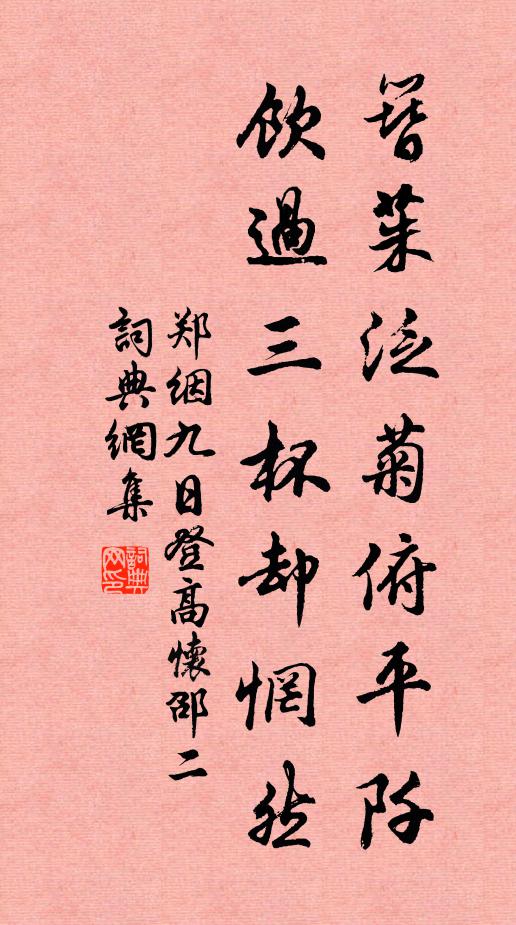 簪茱泛菊俯平阡
飲過三杯却惘然
郑絪九日登高懷邵二
詞典網集
詞典网印